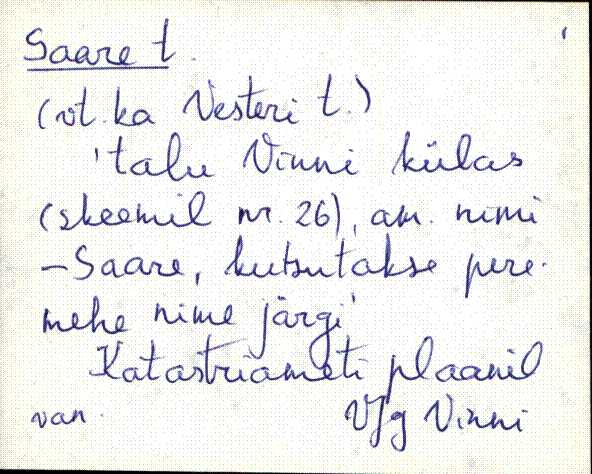 Saare t.
(vt. ka Vesteri t.)
'talu Vinni külas
(skeemil nr. 26), am. nimi
– Saare, kutsutakse pere-
mehe nime järgi'
Katastriameti plaanil
van. VJg Vinni